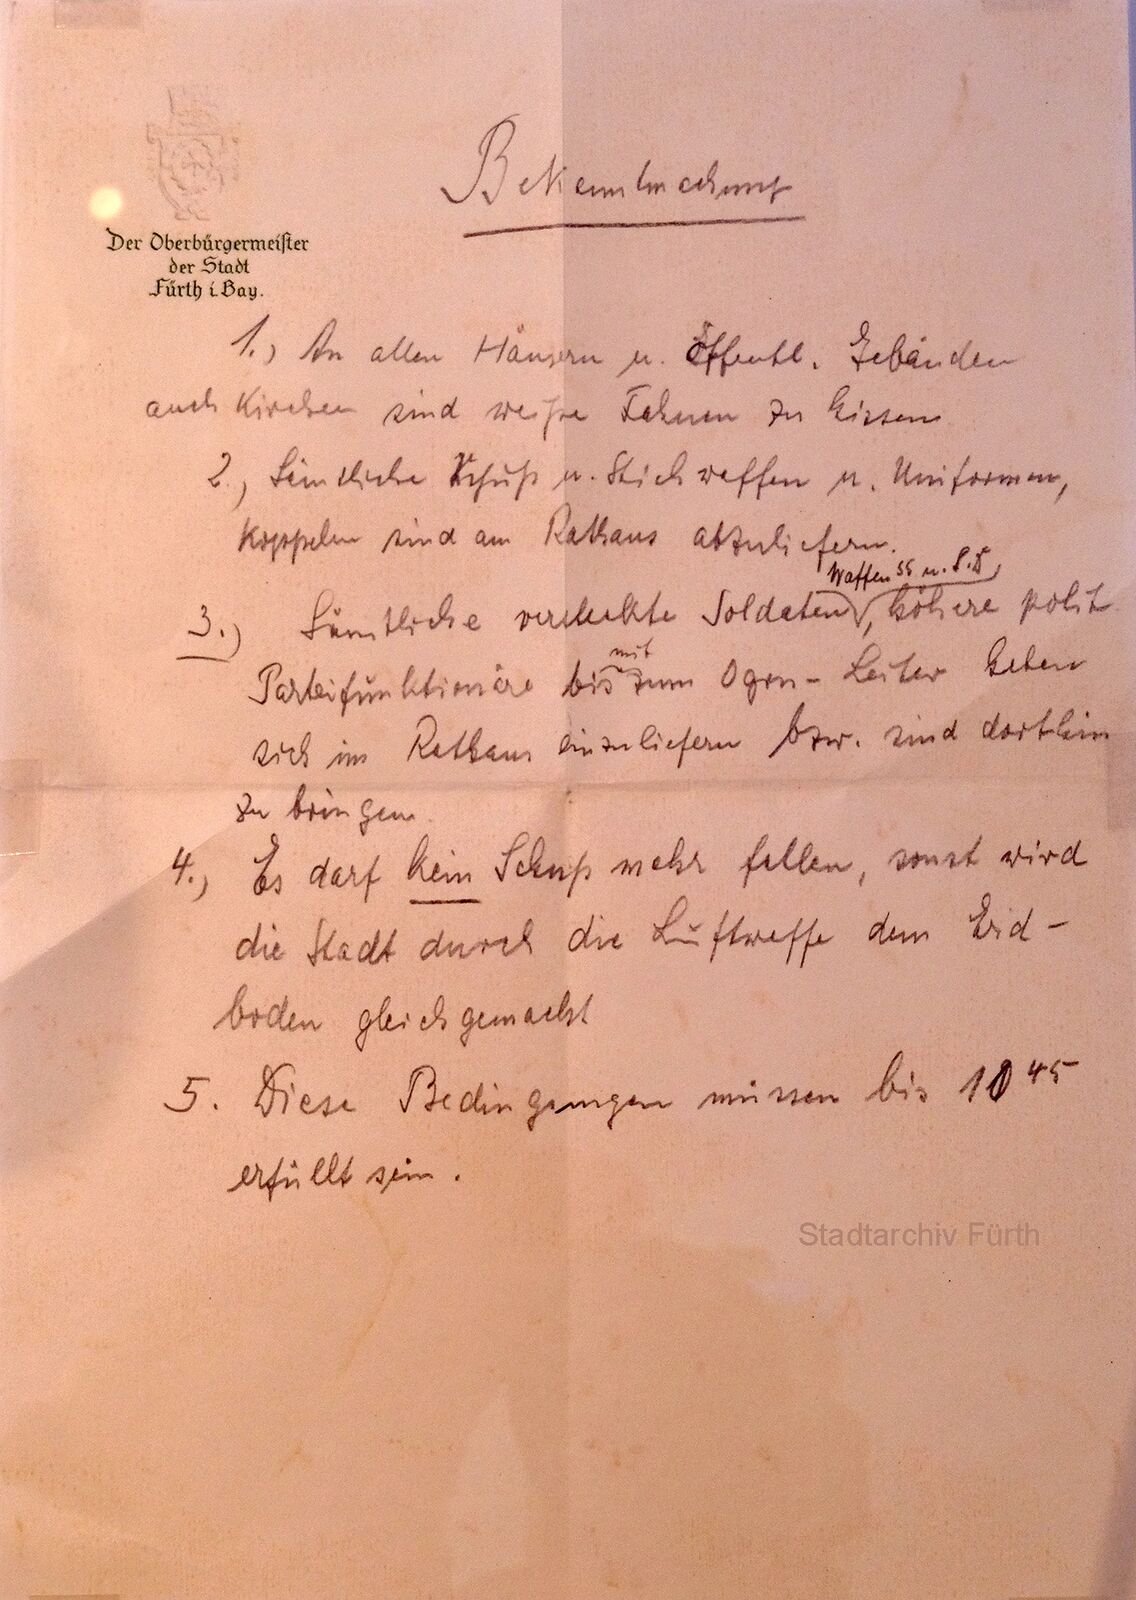 Bekanntmachung
Der Oberbürgermeister
der Stadt
Fürth i. Bay.
1., An allen Häusern u. öffentl. Gebäuden
auch Kirchen sind weiße Fahnen zu hissen
2., Sämtliche Schuß u. Stichwaffen u. Uniformen,
Koppeln sind am Rathaus abzuliefern.
Waffen SS u. S.D,
3.) Sämtliche versteckte Soldaten, höhere polit
mit
Parteifunktionäre bis zum Ogrn- Leiter haben
sich im Rathaus einzuliefern bzw. sind dorthin
zu bringen.
4., Es darf kein Schuß mehr fallen, sonst wird
die Stadt durch die Luftwaffe dem Erd-
boden gleichgemacht
5. Diese Bedingungen müssen bis 10 45
erfüllt sein.
Stadtarchiv Fürth